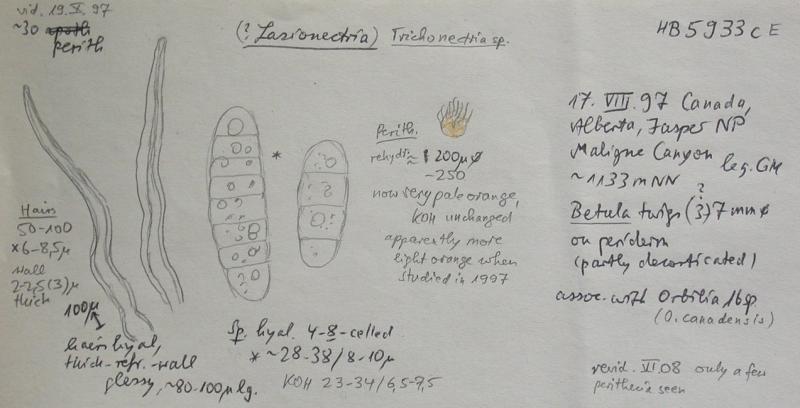 vid. 19.X.97
~30 apoth
perith
(? Lasionectria) Trichonectria sp.
HB 5933c E
17. VIII. 97 Canada,
Alberta, Jasper NP
Maligne Canyon
leg. GM
~1133 mNN
?
Betula twigs (3) 7 mm ø
on periderm
(partly decorticated)
assoc. with Orbilia 16sp
(O. canadensis)
revid. VI.08 only a few
perithecia seen
Perith.
rehydr. ≈ 200µ ø
-250
now very pale orange,
KOH unchanged
apparently more
light orange when
studied in 1997
*
Hairs
50-100
×6-8,5µ
wall
2-2,5(3)µ
thick
100µ
hairs hyal,
thick-refr.-wall
glassy, ~80-100µ lg.
Sp. hyal. 4-8-celled
* ~28-38/8-10µ
KOH 23-34/6,5-7,5